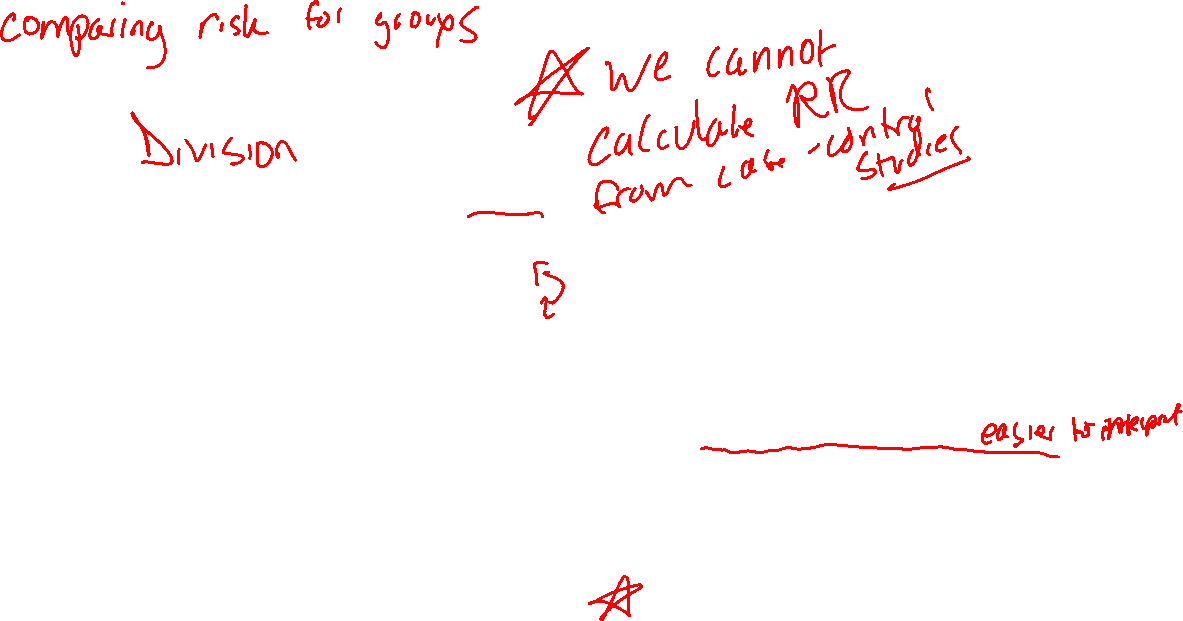 comparing risk for groups
We cannot
Division
calculate RR
from case-control
studies
easier to interpret